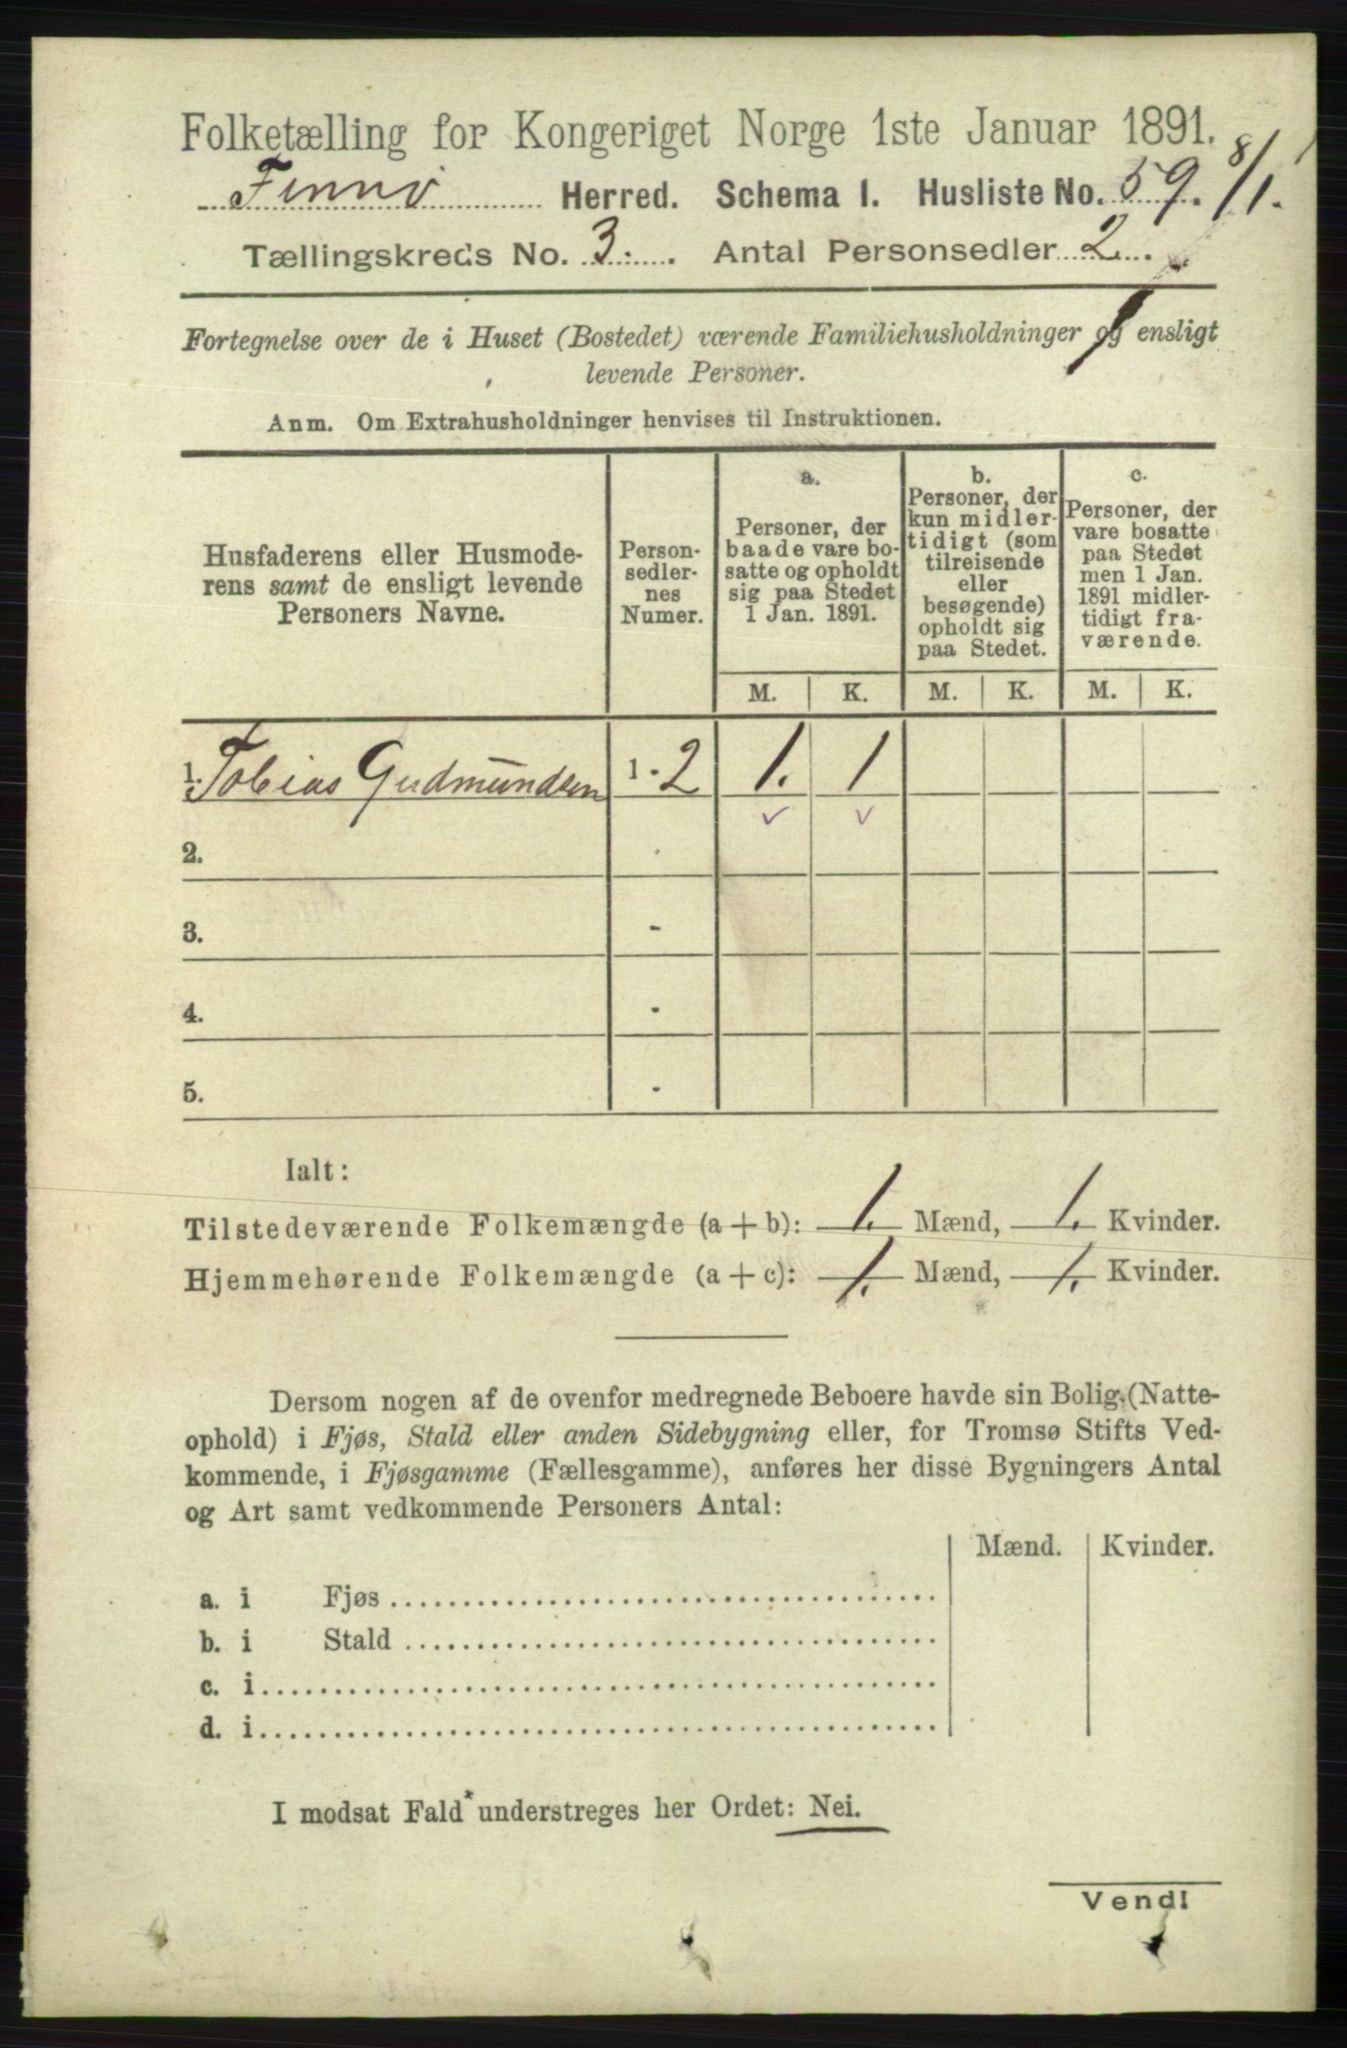 Folketælling for Kongeriget Norge 1ste Januar 1891.
Finnö Herred. Schema I. Husliste No. 59. 8/1.
Tællingskreds No. 3. Antal Personsedler 2.
Fortegnelse over de i Huset (Bostedet) værende Familiehusholdninger og ensligt
levende Personer.
Anm. Om Extrahusholdninger henvises til Instruktionen.
Husfaderens eller Husmode-
rens samt de ensligt levende
Personers Navne.
Person-
sedler-
nes
Numer.
a.
Personer, der
baade vare bo-
satte og opholdt
sig paa Stedet
1 Jan. 1891.
b.
Personer, der
kun midler-
tidigt (som
tilreisende
eller
besøgende)
opholdt sig
paa Stedet.
c.
Personer, der
vare bosatte
paa Stedet
men 1 Jan.
1891 midler-
tidigt fra-
værende.
M. K. M. K. M. K.
1. Tobias Gudmundsen 1 - 2 1. 1
2.
3. -
4. -
5. -
Ialt:
Tilstedeværende Folkemængde (a + b): 1. Mænd, 1. Kvinder.
Hjemmehørende Folkemængde (a + c): 1. Mænd, 1. Kvinder.
Dersom nogen af de ovenfor medregnede Beboere havde sin Bolig (Natte-
ophold) i Fjøs, Stald eller anden Sidebygning eller, for Tromsø Stifts Ved-
kommende, i Fjøsgamme (Fællesgamme), anføres her disse Bygningers Antal
og Art samt vedkommende Personers Antal:
Mænd. Kvinder.
a. i Fjøs
b. i Stald
c. i
d. i
I modsat Fald understreges her Ordet: Nei.
Vend!